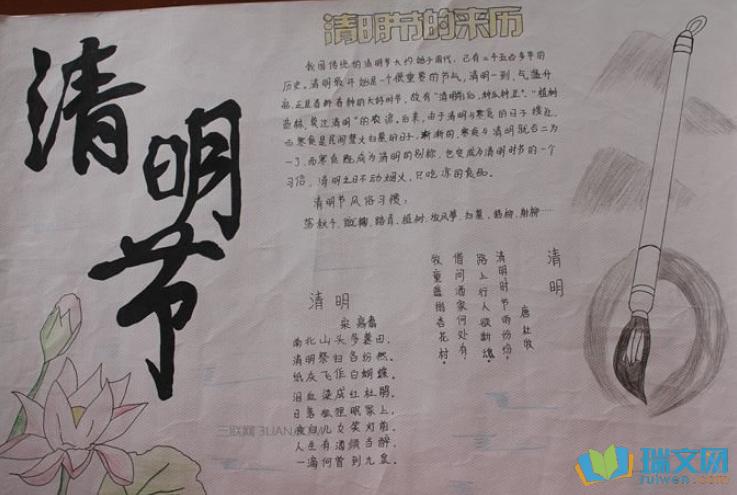 清明节
清明节的来历
我国传统的清明节大约始于周代,已有二千五百多年的
历史。清明最开始是一个很重要的节气,清明一到,气温升
高,正是春耕春种的大好时节,故有“清明前后,种瓜种豆”。“植树
造林,莫过清明”的农谚。后来,由于清明与寒食的日子接近,
而寒食是民间禁火扫墓的日子,渐渐的,寒食与清明就合二为
一了,而寒食既成为清明的别称,也变成为清明时节的一个
习俗,清明之日不动烟火,只吃凉的食品。
清明节风俗习惯:
荡秋千,蹴鞠,踏青,植树,放风筝,扫墓,插柳,射柳……
清明
唐 杜牧
清明时节雨纷纷,
路上行人欲断魂。
借问酒家何处有,
牧童遥指杏花村。
清明
宋 高翥
南北山头多墓田,
清明祭扫各纷然。
纸灰飞作白蝴蝶,
泪血染成红杜鹃。
日暮狐狸眠冢上,
夜归儿女笑灯前。
人生有酒须当醉,
一滴何曾到九泉。
三联网 3LIAN
瑞文网
ruiwen.com